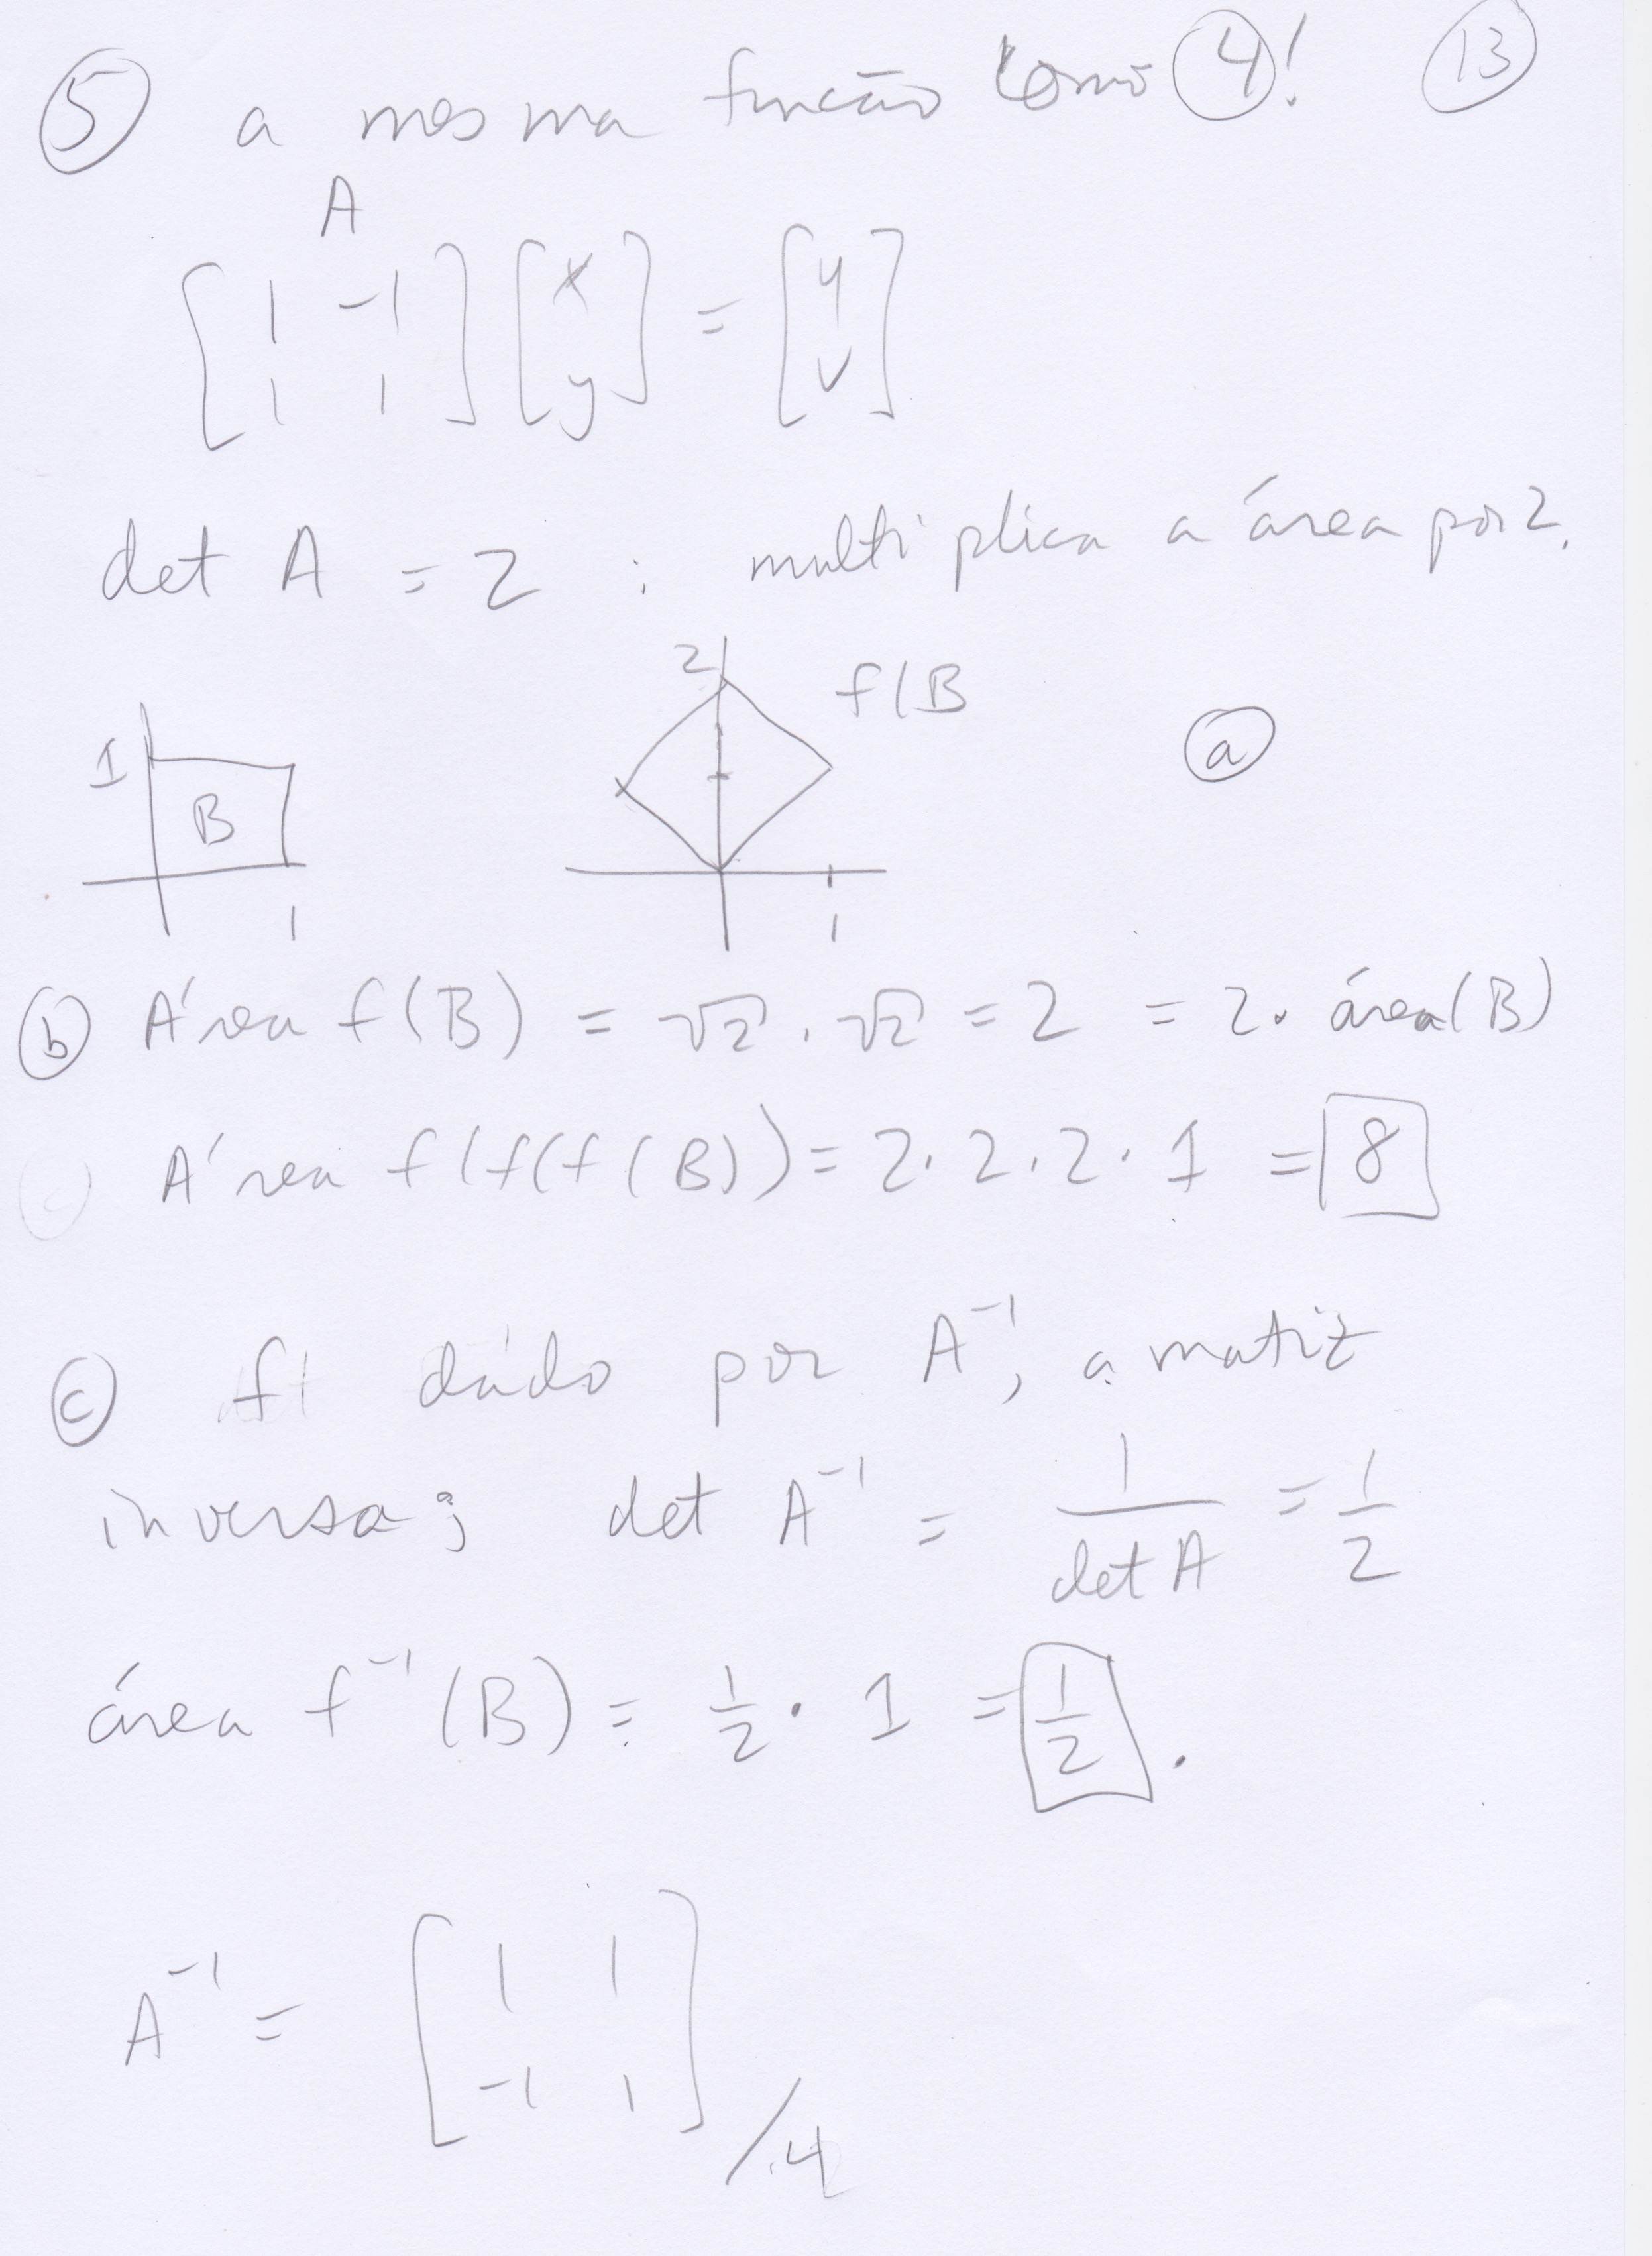 ⑤ a mesma função como ④! ⑬
A
[1 -1; 1 1] [x; y] = [u; v]
det A = 2 : multiplica a área por 2.
2 f(B
1 B ⓐ
1 1
ⓑ Área f(B) = √2 . √2 = 2 = 2. área(B)
Área f(f(f(B)) = 2.2.2.1 = 8
ⓒ dado por A⁻¹, a matriz
inversa; det A⁻¹ = 1/det A = 1/2
área f⁻¹(B) = 1/2 . 1 = 1/2 .
A⁻¹ = [1 1; -1 1] /4